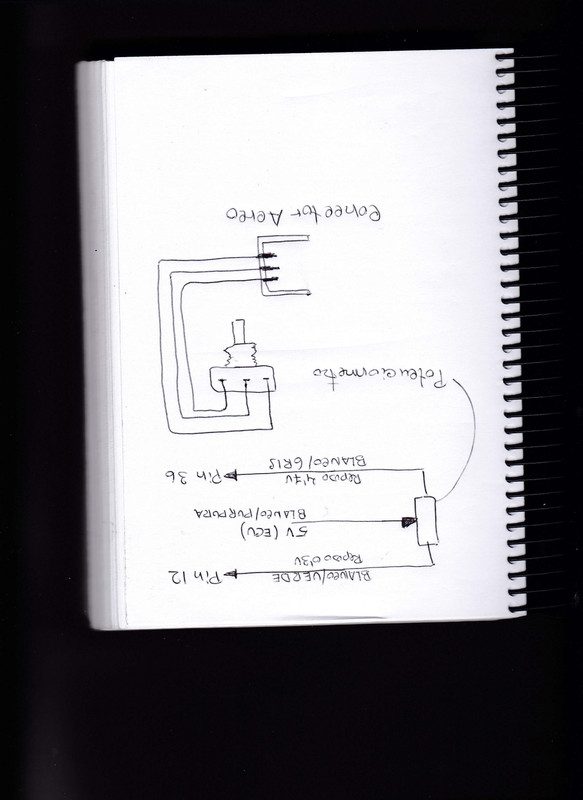 BLANCO/VERDE Pin 12
Reposo 0'3V
5V (ECU)
BLANCO/PURPURA
Reposo 4'7V Pin 36
BLANCO/GRIS
Potenciometro
Conector Aereo